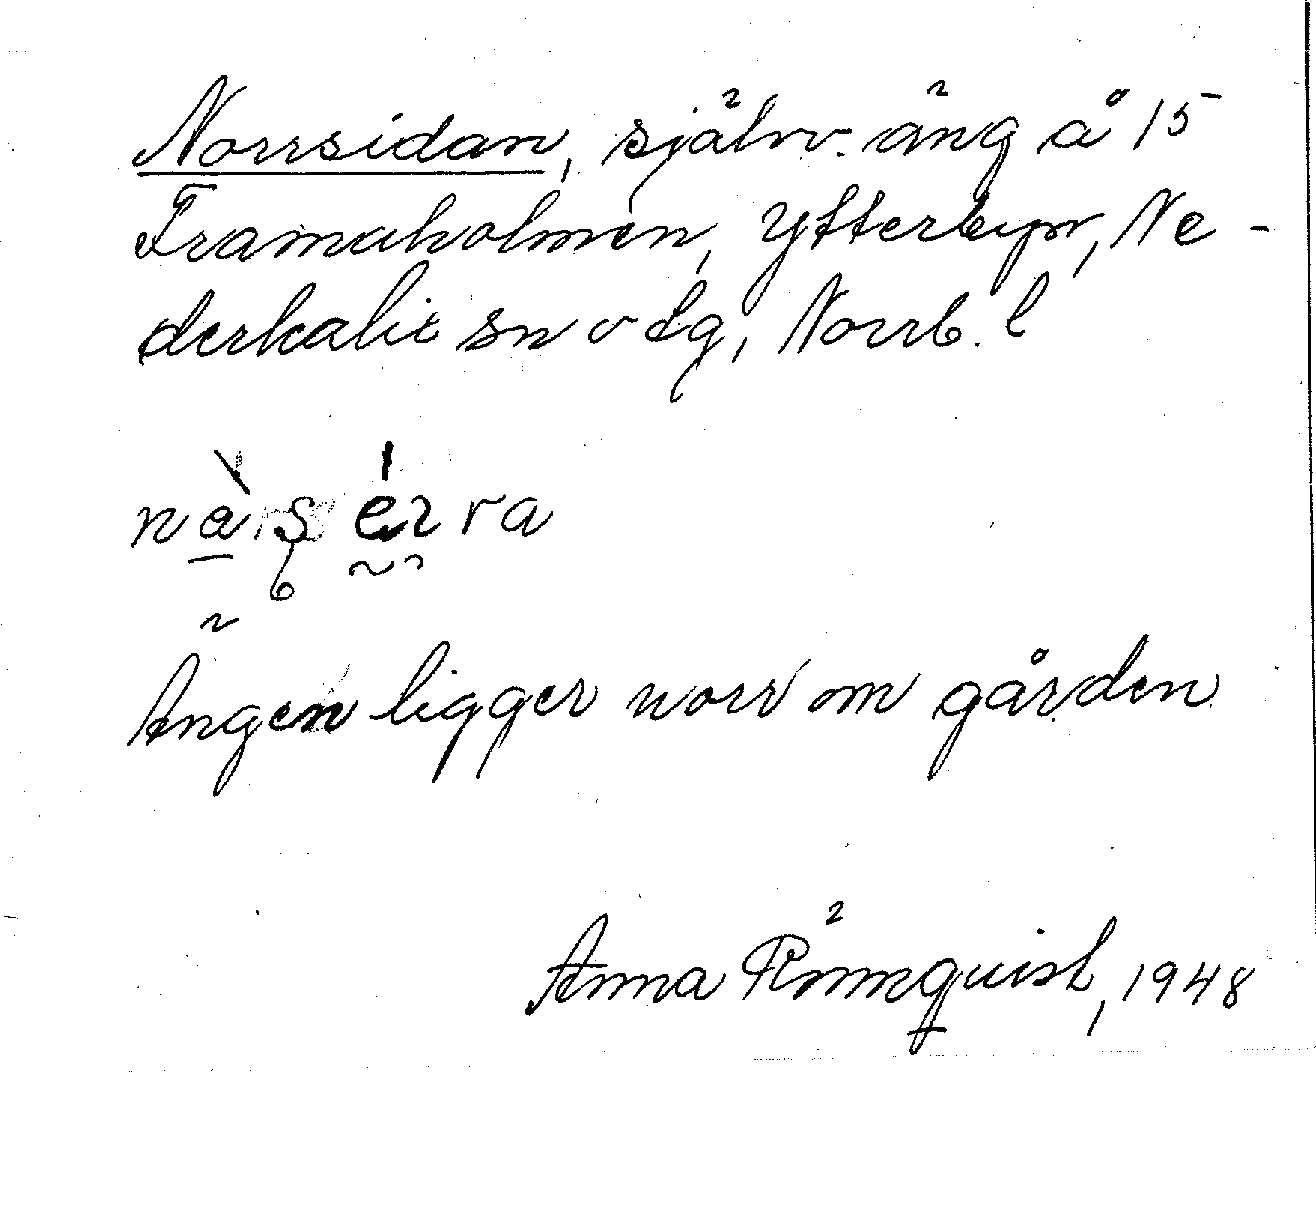 Norrsidan, självv. äng å 15
Framaholmen, Ytterbyn, Ne-
derkalix sn o tg, Norrb. l
Ängen ligger norr om gården
Anna Rönnquist, 1948